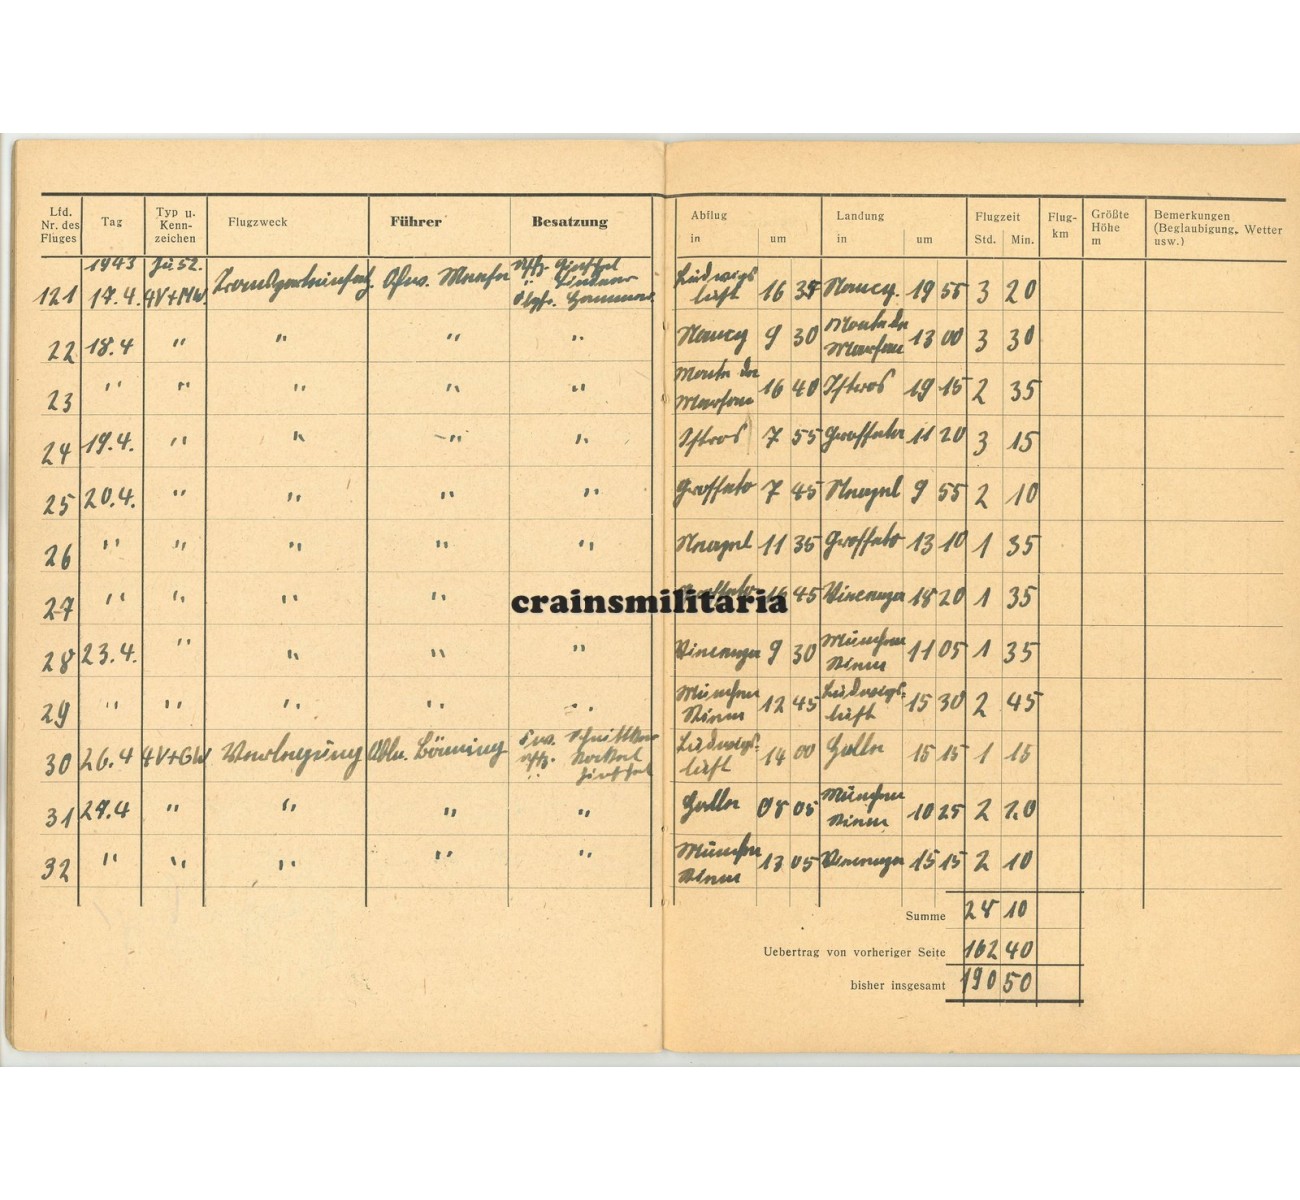 Lfd. Nr. des Fluges Tag Typ u. Kenn-zeichen Flugzweck Führer Besatzung Abflug in um Landung in um Flugzeit Std. Min. Flug-km Größte Höhe m Bemerkungen (Beglaubigung, Wetter usw.)
1943 Ju 52.
121 17.4. 4V+MW. Ludwigslust 16 35 Nancy. 19 55 3 20
22 18.4 " " " " Nancy 9 30 13 00 3 30
23 " " " " " 16 40 Istres 19 15 2 35
24 19.4. " " " " Istres 7 55 11 20 3 15
25 20.4. " " " " Grosseto 7 45 Neapel 9 55 2 10
26 " " " " " Neapel 11 35 Grosseto 13 10 1 35
27 " " " " " 45 18 20 1 35
28 23.4. " " " " 9 30 München Riem 11 05 1 35
29 " " " " " München Riem 12 45 Ludwigs-lust 15 30 2 45
30 26.4 4V+GW Verlegung Bönning Ludwigs-lust 14 00 Halle 15 15 1 15
31 29.4 " " " " Halle 08 05 München Riem 10 25 2 20
32 " " " " " München Riem 13 05 15 15 2 10
crainsmilitaria
Summe 28 10
Uebertrag von vorheriger Seite 162 40
bisher insgesamt 190 50